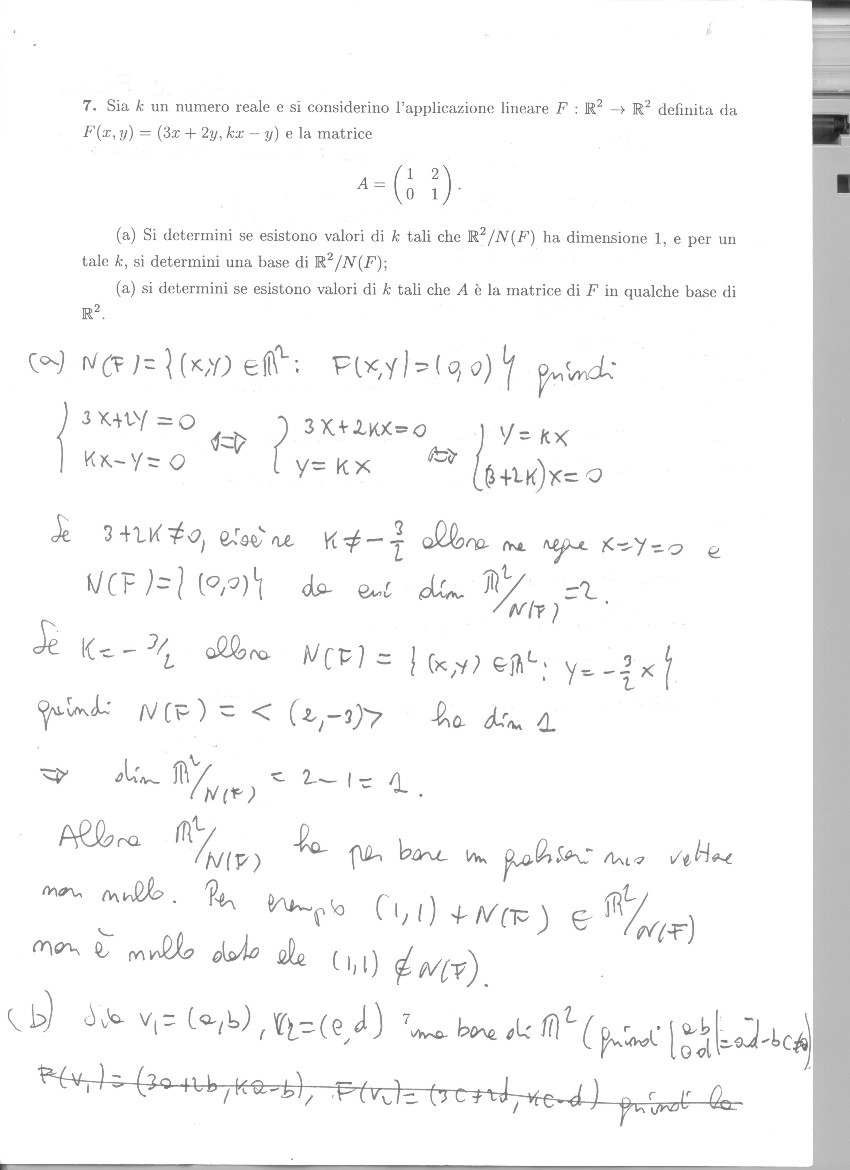 7. Sia k un numero reale e si considerino l'applicazione lineare F : ℝ² → ℝ² definita da
F(x, y) = (3x + 2y, kx − y) e la matrice
A = ( 1 2
0 1 ) .
(a) Si determini se esistono valori di k tali che ℝ²/N(F) ha dimensione 1, e per un
tale k, si determini una base di ℝ²/N(F);
(a) si determini se esistono valori di k tali che A è la matrice di F in qualche base di
ℝ².
(a) N(F) = { (x,y) ∈ ℝ² : F(x,y) = (0,0) } quindi
{ 3x+2y = 0 ⇔ { 3x+2kx = 0 ⇔ { y = kx
kx−y = 0 y = kx (3+2k)x = 0
Se 3+2k ≠ 0, cioè se k ≠ −3/2 allora ne segue x=y=0 e
N(F) = { (0,0) } da cui dim ℝ²/N(F) = 2.
Se k = −3/2 allora N(F) = { (x,y) ∈ ℝ² : y = −3/2 x }
quindi N(F) = < (2,−3) > ha dim 1
⇒ dim ℝ²/N(F) = 2−1 = 1.
Allora ℝ²/N(F) ha per base un qualsiasi suo vettore
non nullo. Per esempio (1,1) + N(F) ∈ ℝ²/N(F)
non è nullo dato che (1,1) ∉ N(F).
(b) Sia v₁ = (a,b), v₂ = (c,d) una base di ℝ² (quindi |a b
c d| = ad−bc≠0)
F(v₁) = (3a+2b, ka−b), F(v₂) = (3c+2d, kc−d) quindi la